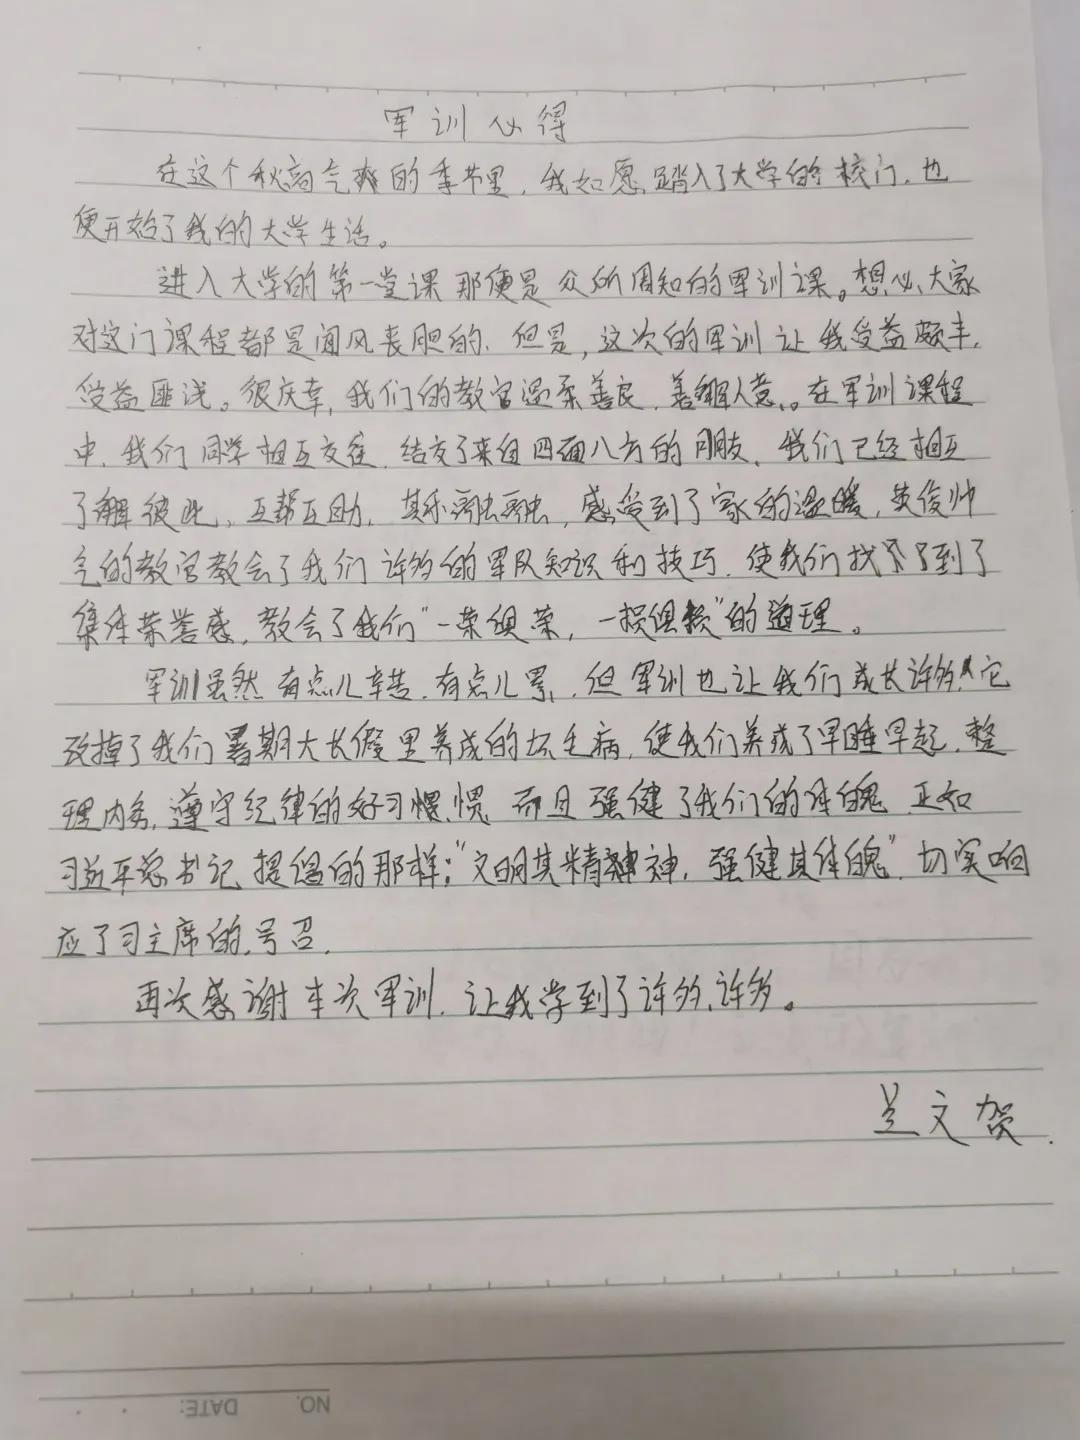 军训心得
在这个秋高气爽的季节里，我如愿踏入了大学的校门，也
便开始了我的大学生活。
进入大学的第一堂课那便是众所周知的军训课。想必大家
对这门课程都是闻风丧胆的，但是，这次的军训让我受益颇丰，
受益匪浅。很庆幸，我们的教官温柔善良，善解人意。在军训课程
中，我们同学相互交往，结交了来自四面八方的朋友，我们已经相互
了解彼此，互帮互助，其乐融融，感受到了家的温暖，英俊帅
气的教官教会了我们许多的军队知识和技巧，使我们找到了
集体荣誉感，教会了我们“一荣俱荣，一损俱损”的道理。
军训虽然有点儿辛苦，有点儿累，但军训也让我们成长许多，它
改掉了我们暑期大长假里养成的坏毛病，使我们养成了早睡早起，整
理内务，遵守纪律的好习惯，而且强健了我们的体魄，正如
习近平总书记提倡的那样：“文明其精神，强健其体魄”，切实响
应了习主席的号召，
再次感谢本次军训，让我学到了许多，许多。
兰文贺.
NO.
DATE: